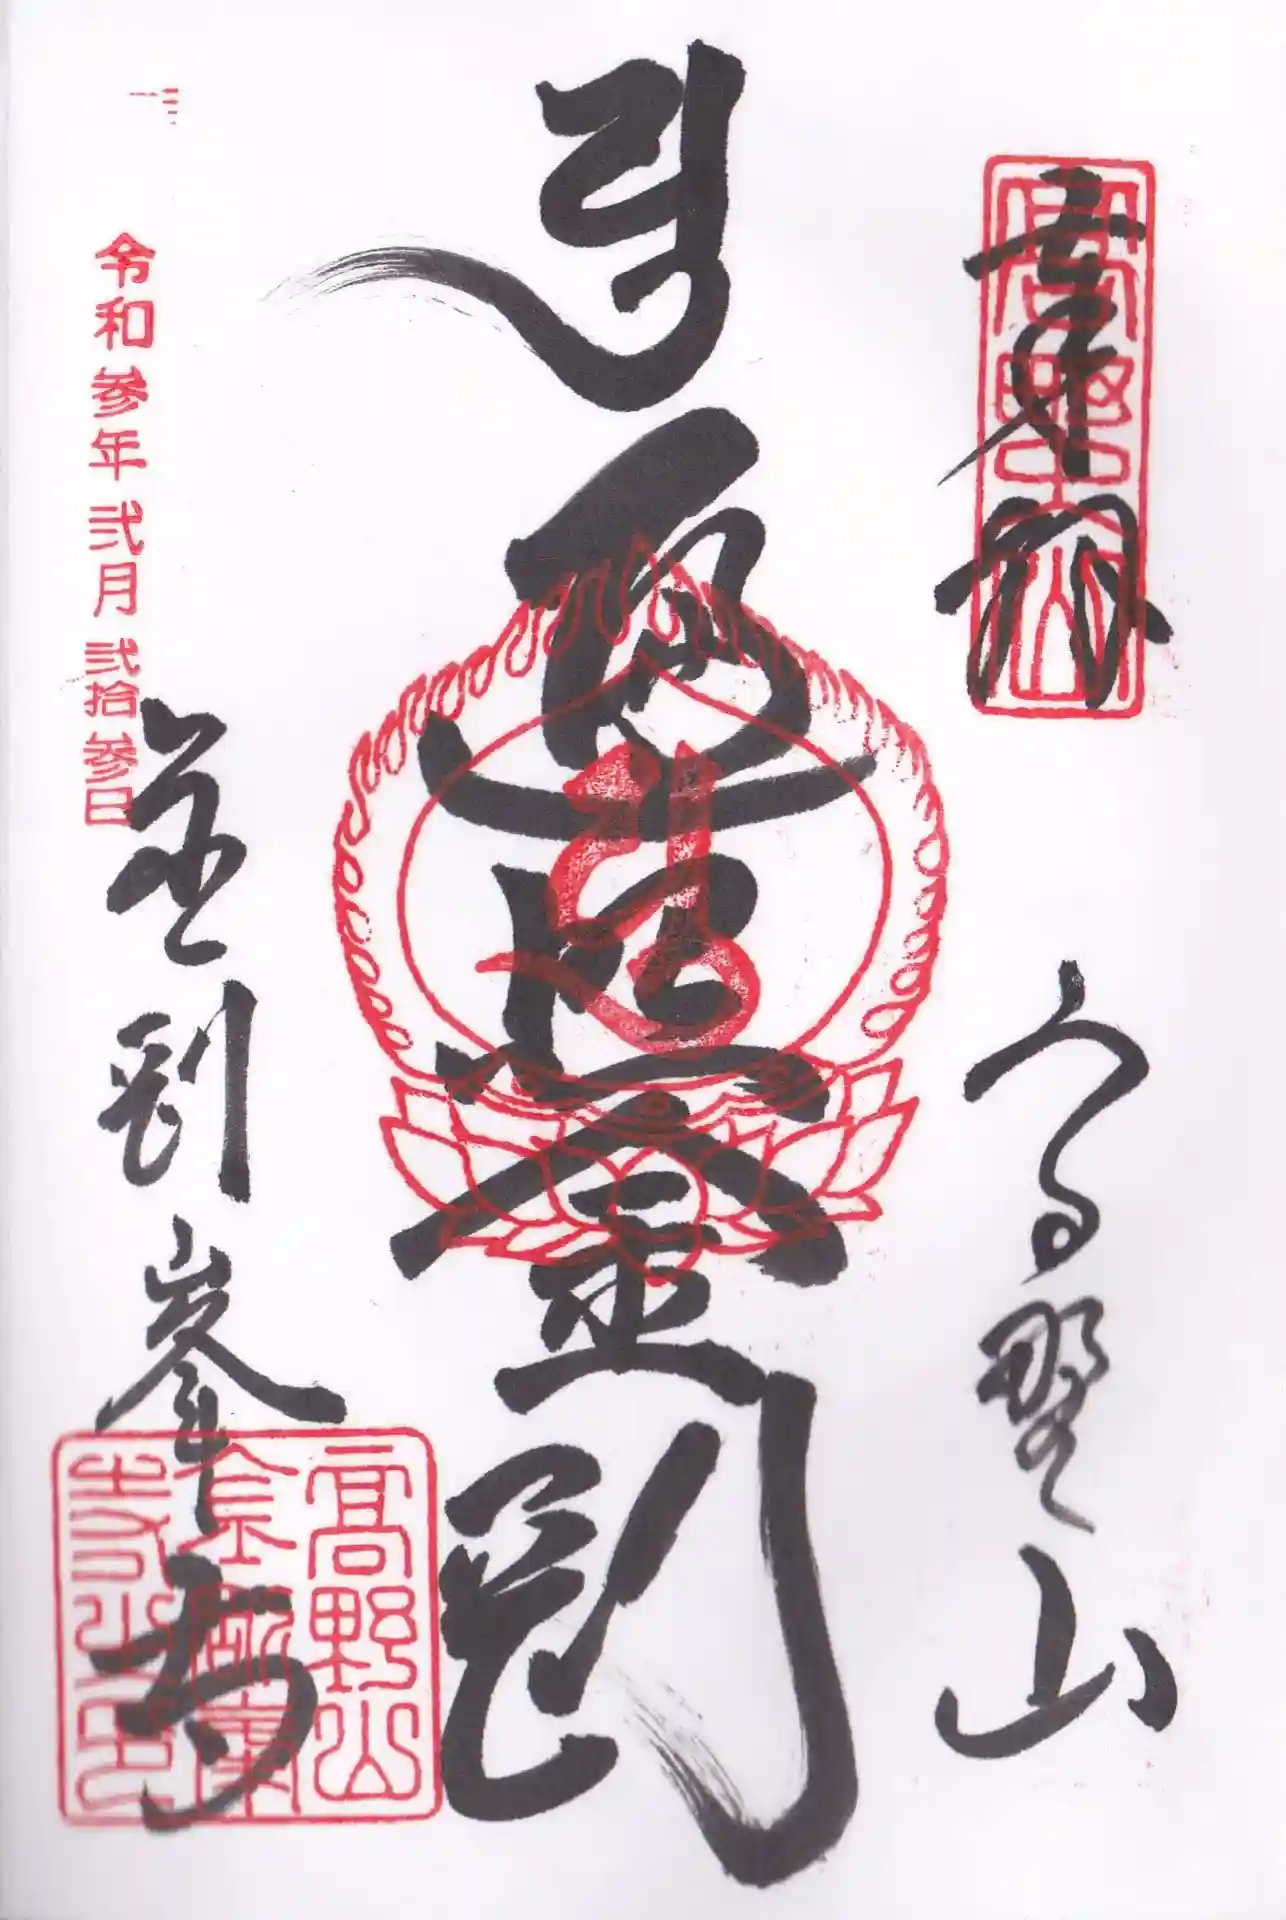 奉拝
高野山
高野山
遍照金剛
令和参年弐月弐拾参日
金剛峯寺
高野山
金剛峯
寺之印